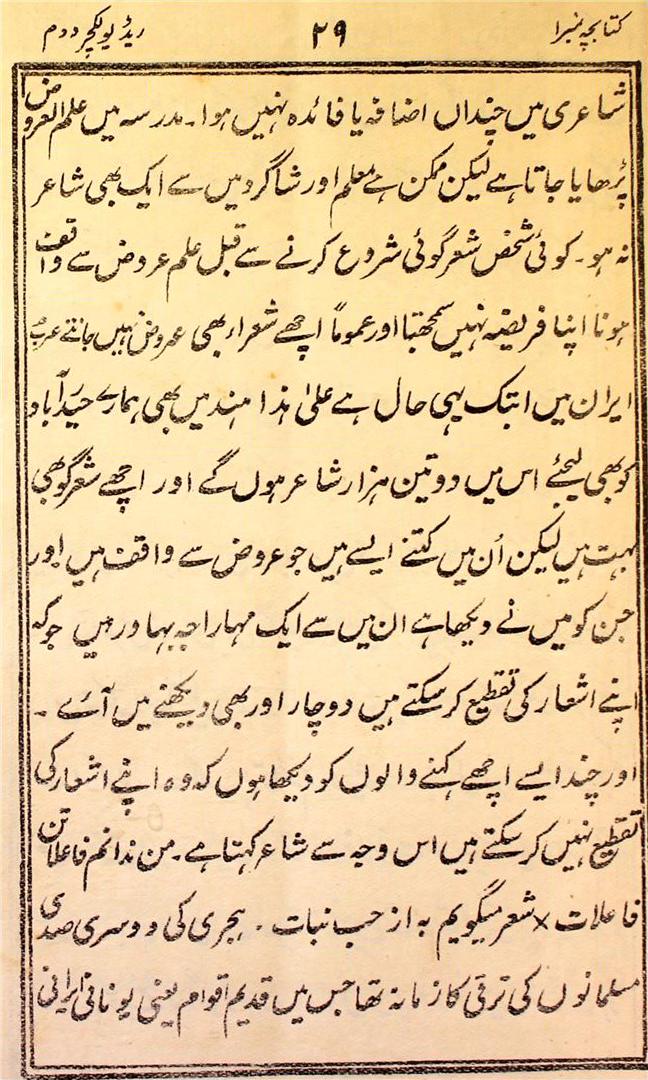 کتابچہ نمبر۱ ۲۹ ریڈیو لکچر دوم
شاعری میں چنداں اضافہ یا فائدہ نہیں ہوا۔ مدرسہ میں علم العروض
پڑھایا جاتا ہے لیکن ممکن ہے معلم اور شاگرد میں سے ایک بھی شاعر
نہ ہو۔ کوئی شخص شعر گوئی شروع کرنے سے قبل علم عروض سے واقف
ہونا اپنا فریضہ نہیں سمجھتا اور عموماً اچھے شعراء بھی عروض نہیں جانتے عرب
ایران میں ابتک یہی حال ہے علیٰ ہذا ہند میں بھی ہمارے حیدرآباد
کو بھی لیجئے اس میں دو تین ہزار شاعر ہوں گے اور اچھے شعر گو بھی
بہت ہیں لیکن اُن میں کتنے ایسے ہیں جو عروض سے واقف ہیں اور
جن کو میں نے دیکھا ہے ان میں سے ایک مہاراجہ بہادر ہیں جو کہ
اپنے اشعار کی تقطیع کر سکتے ہیں دو چار اور بھی دیکھنے میں آئے ۔
اور چند ایسے اچھے کہنے والوں کو دیکھا ہوں کہ وہ اپنے اشعار کی
تقطیع نہیں کر سکتے ہیں اس وجہ سے شاعر کہتا ہے ۔ من ندانم فاعلاتن
فاعلات × شعر میگویم بہ از حب نبات ۔ ہجری کی دوسری صدی
مسلمانوں کی ترقی کا زمانہ تھا جس میں قدیم اقوام یعنی یونانی ایرانی